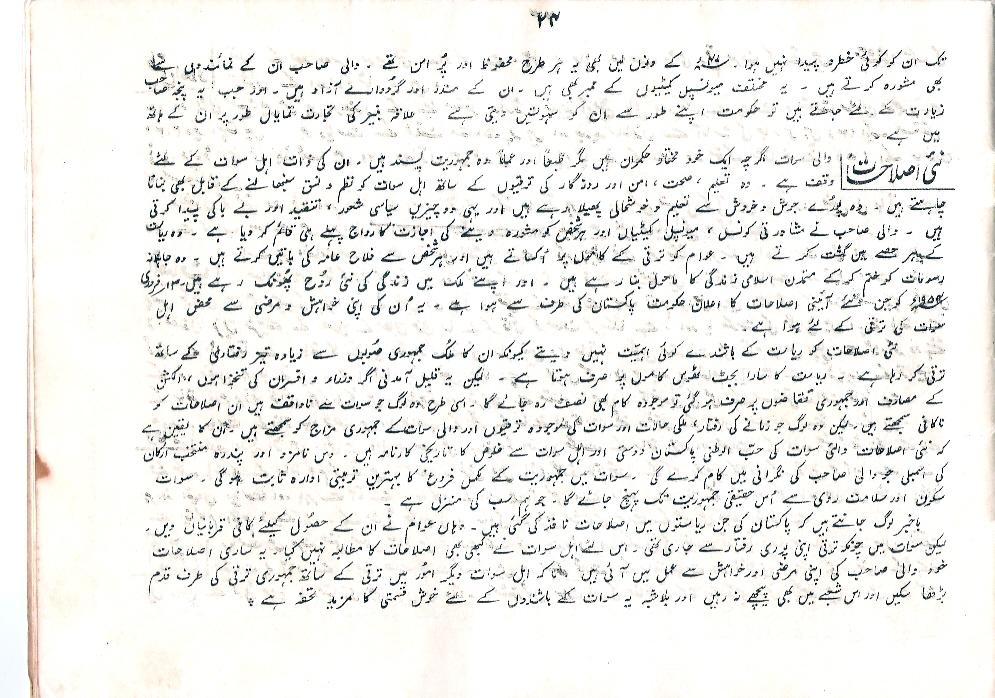 ۲۳
تک ان کو کوئی خطرہ پیدا نہیں ہوا۔ کے دنوں میں بھی یہ ہر طرح محفوظ اور پُر امن تھے۔ والی صاحب ان کے نمائندوں سے
بھی مشورہ کرتے ہیں۔ یہ مختلف میونسپل کمیٹیوں کے ممبر بھی ہیں۔ ان کے مندر اور گردوارے آزاد ہیں۔ اور جب یہ پنجہ صاحب
زیارت کے لئے جاتے ہیں تو حکومت اپنے طور سے ان کو سہولتیں دیتی ہے۔ علاقہ بنیر کی تجارت نمایاں طور پر ان کے ہاتھ
میں ہے۔
نئی اصلاحات والی سوات اگرچہ ایک خود مختار حکمران ہیں مگر طبعاً اور عملاً وہ جمہوریت پسند ہیں۔ ان کی ذات اہل سوات کے لئے
وقف ہے۔ وہ تعلیم، صحت، امن اور روزگار کی ترقیوں کے ساتھ اہل سوات کو نظم و نسق سنبھالنے کے قابل بھی بنانا
چاہتے ہیں۔ وہ پورے جوش و خروش سے تعلیم و خوشحالی پھیلا رہے ہیں اور یہی دو چیزیں سیاسی شعور، تنقید اور بے باکی پیدا کرتی
ہیں۔ والی صاحب نے مشاورتی کونسل، میونسپل کمیٹیاں اور ہر شخص کو مشورہ دینے کی اجازت کا رواج پہلے ہی قائم کر دیا ہے۔ وہ ریاست
کے ہر حصے میں گشت کرتے ہیں۔ عوام کو ترقی کے کام پر اُکساتے ہیں اور ہر شخص سے فلاح عامہ کی باتیں کرتے ہیں۔ وہ جاہلانہ
رسومات کو ختم کر کے متمدن اسلامی زندگی کا ماحول بنا رہے ہیں۔ اور اپنے ملک میں زندگی کی نئی رُوح پھونک رہے ہیں۔ فروری
کو جن نئے آئینی اصلاحات کا اعلان حکومت پاکستان کی طرف سے ہوا ہے۔ یہ اُن کی اپنی خواہش و مرضی سے محض اہل
سوات کی ترقی کے لئے ہوا ہے۔
نئی اصلاحات کو ریاست کے باشندے کوئی اہمیت نہیں دیتے کیونکہ ان کا ملک جمہوری صوبوں سے زیادہ تیز رفتاری کے ساتھ
ترقی کر رہا ہے۔ ریاست کا سارا بجٹ ٹھوس کاموں پر صرف ہوتا ہے۔ لیکن یہ قلیل آمدنی اگر وزراء و افسران کی تنخواہوں، الکشن
کے مصارف اور جمہوری تقاضوں پر صرف ہو گئی تو موجودہ کام بھی نصف رہ جائے گا۔ اسی طرح وہ لوگ جو سوات سے ناواقف ہیں ان اصلاحات کو
ناکافی سمجھتے ہیں۔ لیکن وہ لوگ جو زمانے کی رفتار، ملکی حالات اور سوات کی موجودہ ترقیوں اور والی سوات کے جمہوری مزاج کو سمجھتے ہیں۔ ان کا یقین ہے
کہ نئی اصلاحات والئی سوات کی حبّ الوطنی پاکستان دوستی اور اہل سوات سے خلوص کا تاریخی کارنامہ ہیں۔ دس نامزد اور پندرہ منتخب ارکان
کی اسمبلی جو والی صاحب کی نگرانی میں کام کرے گی۔ سوات میں جمہوریت کے مکمل فروغ کا بہترین تربیتی ادارہ ثابت ہوگی۔ سوات
سکون اور سلامت روی سے اُس حقیقی جمہوریت تک پہنچ جائے گا۔ جو ہم سب کی منزل ہے۔
باخبر لوگ جانتے ہیں کہ پاکستان کی جن ریاستوں میں اصلاحات نافذ کی گئی ہیں۔ وہاں عوام نے ان کے حصول کیلئے کافی قربانیاں دیں۔
لیکن سوات میں چونکہ ترقی اپنی پوری رفتار سے جاری تھی۔ اس لئے اہل سوات نے کبھی بھی اصلاحات کا مطالبہ نہیں کیا۔ یہ ساری اصلاحات
خود والی صاحب کی اپنی مرضی اور خواہش سے عمل میں آئی ہیں تاکہ اہل سوات دیگر امور میں ترقی کے ساتھ جمہوری ترقی کی طرف قدم
بڑھا سکیں اور اس شعبے میں بھی پیچھے نہ رہیں اور بلاشبہ یہ سوات کے باشندوں کے لئے خوش قسمتی کا مزید تحفہ ہے۔